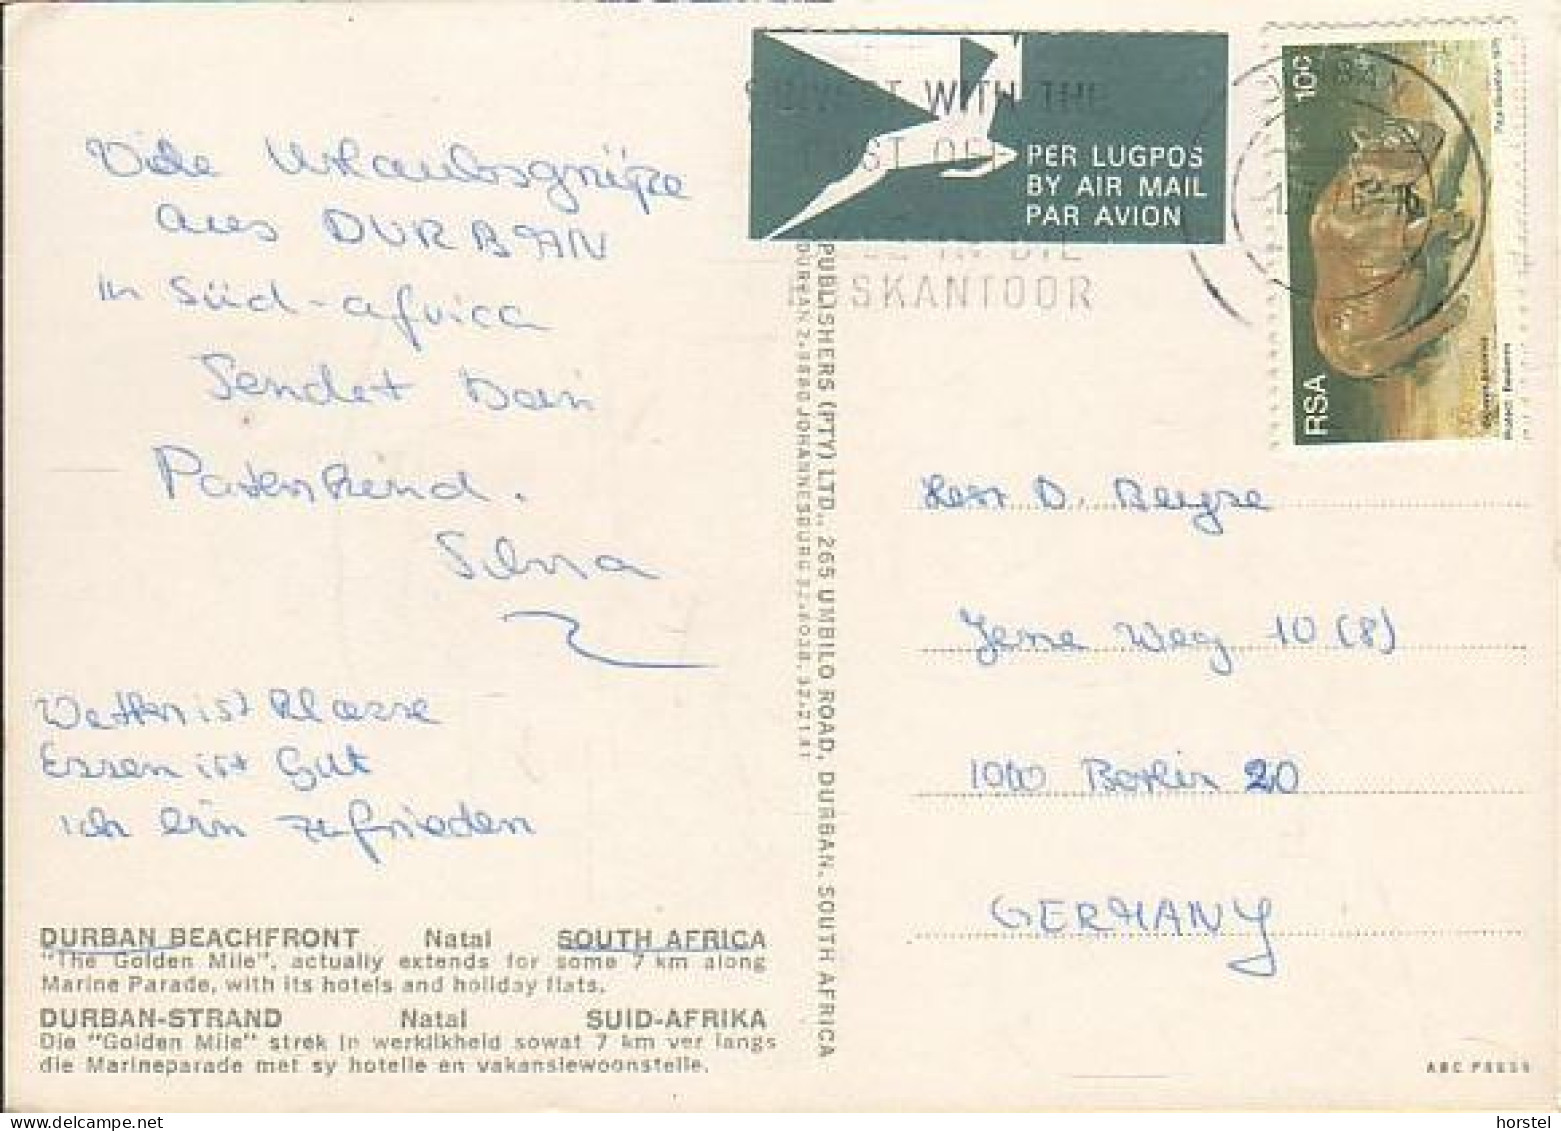 Viele Urlaubsgrüße
aus DURBAN
in Süd-africa
Sendet Dein
Patenkind.
Wetter ist klasse
Essen ist Gut
ich bin zufrieden
DURBAN BEACHFRONT Natal SOUTH AFRICA
"The Golden Mile", actually extends for some 7 km along
Marine Parade, with its hotels and holiday flats.
DURBAN-STRAND Natal SUID-AFRIKA
Die "Golden Mile" strek in werklikheid sowat 7 km ver langs
die Marineparade met sy hotelle en vakansiewoonstelle.
PUBLISHERS (PTY) LTD., 265 UMBILO ROAD, DURBAN, SOUTH AFRICA
DURBAN JOHANNESBURG
WITH THE
POST OFF
IN DIE
SKANTOOR
PER LUGPOS
BY AIR MAIL
PAR AVION
10c
RSA
Herr D.
Weg 10 (8)
1000 Berlin 20
GERMANY
ABC PRESS
horstel